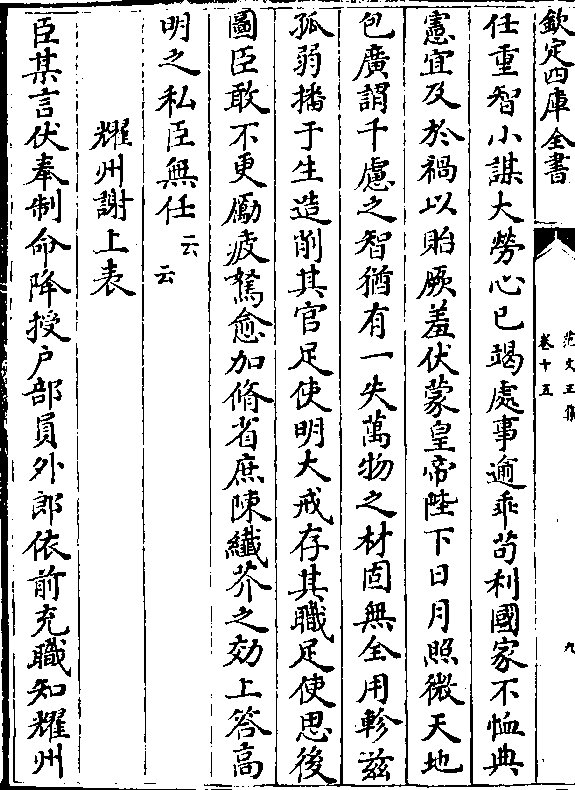 欽定四庫全書
范文正集
卷十五
九
任重智小謀大勞心已竭處事逾乖苟利國家不恤典
憲宜及於禍以貽厥羞伏蒙皇帝陛下日月照微天地
包廣謂千慮之智猶有一失萬物之材固無全用軫兹
孤弱播于生造削其官足使明大戒存其職足使思後
圖臣敢不更勵疲駑愈加脩省庶陳纖芥之効上答高
明之私臣無任云云
耀州謝上表
臣某言伏奉制命降授户部員外郎依前充職知耀州